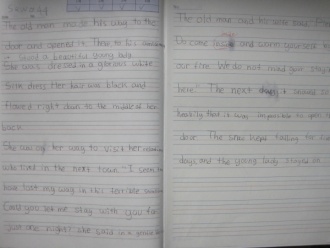 The old man made his way to the
door and opened it. There to his
stood a beautiful young lady.
She was dressed in a glorious white
satin dress. Her hair was black and
flowed right down to the middle of her
back.
She was on her way to visit her
who lived in the next town. I seem to
have lost my way in this terrible
Could you let me stay with you for
just one night? she said in a gentle
The old man said he
Do come inside and warm yourself by
our fire. We do not mind you staying
here." The next day it snowed so
heavily that it was impossible to open the
door. The snow kept falling for many
days and the young lady stayed on